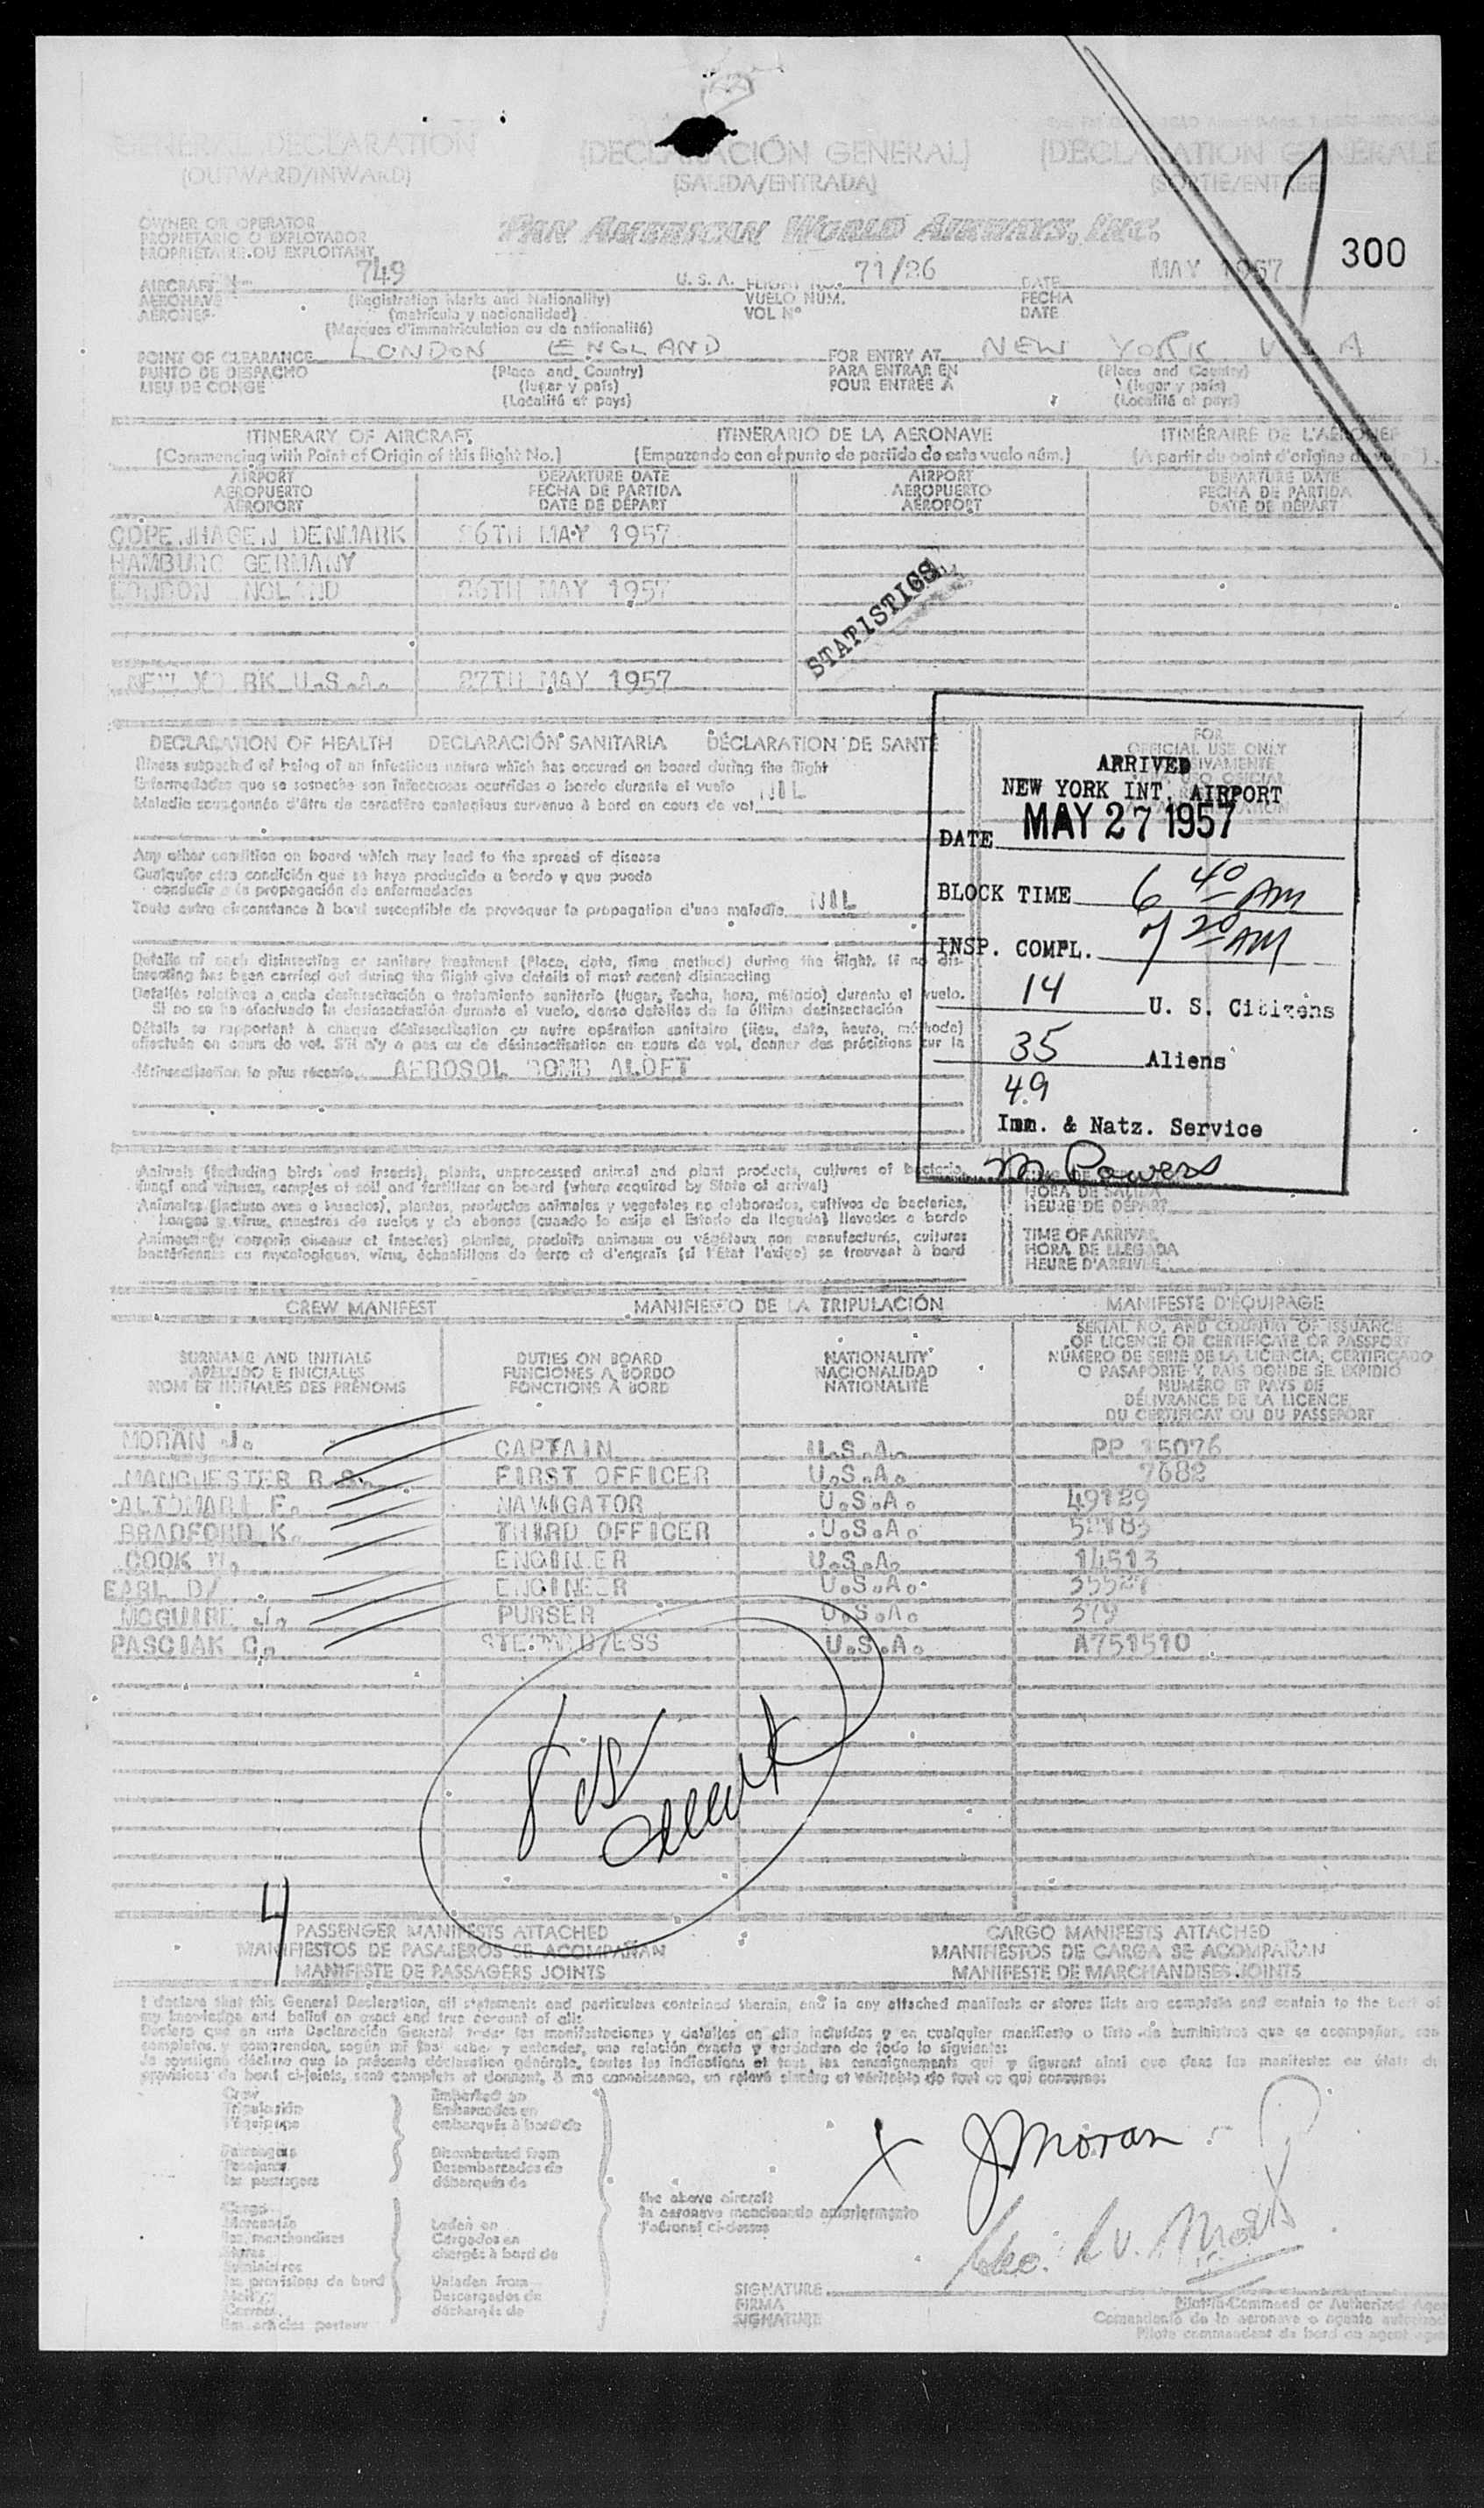 GENERAL DECLARATION
(OUTWARD/INWARD)
(DECLARACIÓN GENERAL)
(SALIDA/ENTRADA)
(DECLARATION GENERALE
(SORTIE/ENTREE)
OWNER OR OPERATOR
PROPIETARIO O EXPLOTADOR
PROPRIETAIRE OU EXPLOITANT
PAN AMERICAN WORLD AIRWAYS, INC.
300
AIRCRAFT N- 749 U. S. A. 71/26 DATE MAY 1957
AERONAVE (Registration Marks and Nationality) VUELO NÚM. FECHA
AÉRONEF (matrícula y nacionalidad) VOL Nº DATE
(Marques d'immatriculation ou de nationalité)
POINT OF CLEARANCE LONDON ENGLAND FOR ENTRY AT NEW YORK U S A
PUNTO DE DESPACHO (Place and Country) PARA ENTRAR EN (Place and Country)
LIEU DE CONGE (lugar y país) POUR ENTRÉE A (lugar y país)
(Localité et pays) (Localité et pays)
ITINERARY OF AIRCRAFT ITINERARIO DE LA AERONAVE ITINÉRAIRE DE L'AERONEF
(Commencing with Point of Origin of this flight No.) (Empezando con el punto de partida de este vuelo núm.) (A partir du point d'origine
AIRPORT DEPARTURE DATE AIRPORT DEPARTURE DATE
AEROPUERTO FECHA DE PARTIDA AEROPUERTO FECHA DE PARTIDA
AÉROPORT DATE DE DÉPART AÉROPORT DATE DE DÉPART
COPENHAGEN DENMARK 26TH MAY 1957
HAMBURG GERMANY
LONDON NGLAND 26TH MAY 1957
STATISTICS
NEW YO RK U.S.A. 27TH MAY 1957
DECLARATION OF HEALTH DECLARACIÓN SANITARIA DÉCLARATION DE SANTÉ
Illness suspected of being of an infectious nature which has occured on board during the flight
Enfermedades que se sospeche son infecciosas ocurridas a bordo durante el vuelo
Maladie soupçonnée d'être de caractère contagieux survenue à bord en cours de vol NIL
Any other condition on board which may lead to the spread of disease
Cualquier otra condición que se haya producido a bordo y que pueda
conducir a la propagación de enfermedades
Toute autre circonstance à bord susceptible de provoquer la propagation d'une maladie NIL
Details of each disinsecting or sanitary treatment (Place, date, time, method) during the flight. If no dis-
insecting has been carried out during the flight give details of most recent disinsecting
Detalles relativos a cada desinsectación o tratamiento sanitario (lugar, fecha, hora, método) durante el vuelo.
Si no se ha efectuado la desinsectación durante el vuelo, dense detalles de la última desinsectación
Détails se rapportant à chaque désinsectisation ou autre opération sanitaire (lieu, date, heure, méthode)
effectuée en cours de vol. S'il n'y a pas eu de désinsectisation en cours de vol, donner des précisions sur la
désinsectisation la plus récente AEROSOL BOMB ALOFT
FOR
OFFICIAL USE ONLY
ARRIVED
NEW YORK INT. AIRPORT
DATE MAY 27 1957
BLOCK TIME 6 40 AM
INSP. COMPL. 7 20 AM
14 U. S. Citizens
35 Aliens
49
Imm. & Natz. Service
M Powers
Animals (including birds and insects), plants, unprocessed animal and plant products, cultures of bacteria,
fungi and viruses, samples of soil and fertilizer on board (where required by State of arrival)
Animales (incluso aves e insectos), plantas, productos animales y vegetales no elaborados, cultivos de bacterias,
hongos y virus, muestras de suelos y de abonos (cuando lo exija el Estado de llegada) llevados a bordo
Animaux (y compris oiseaux et insectes) plantes, produits animaux ou végétaux non manufacturés, cultures
bactériennes ou mycologiques, virus, échantillons de terre et d'engrais (si l'État l'exige) se trouvant à bord
HORA DE SALIDA
HEURE DE DÉPART
TIME OF ARRIVAL
HORA DE LLEGADA
HEURE D'ARRIVÉE
CREW MANIFEST MANIFIESTO DE LA TRIPULACIÓN MANIFESTE D'ÉQUIPAGE
SURNAME AND INITIALS DUTIES ON BOARD NATIONALITY SERIAL NO. AND COUNTRY OF ISSUANCE
APELLIDO E INICIALES FUNCIONES A BORDO NACIONALIDAD OF LICENCE OR CERTIFICATE OR PASSPORT
NOM ET INITIALES DES PRÉNOMS FONCTIONS À BORD NATIONALITÉ NÚMERO DE SERIE DE LA LICENCIA, CERTIFICADO
O PASAPORTE Y PAIS DONDE SE EXPIDIO
NUMÉRO ET PAYS DE
DÉLIVRANCE DE LA LICENCE
DU CERTIFICAT OU DU PASSEPORT
MORAN J. CAPTAIN U.S.A. PP 15076
MANCHESTER R.S. FIRST OFFICER U.S.A. 7682
ALTOMARI F. NAVIGATOR U.S.A. 49129
BRADFORD K. THIRD OFFICER U.S.A.
COOK ENGINEER U.S.A. 14513
EARL D/ ENGINEER U.S.A.
MCGUIRE J. PURSER U.S.A. 379
PASCIAK C. STEWARD/ESS U.S.A. A751510
4
PASSENGER MANIFESTS ATTACHED CARGO MANIFESTS ATTACHED
MANIFIESTOS DE PASAJEROS SE ACOMPAÑAN MANIFIESTOS DE CARGA SE ACOMPAÑAN
MANIFESTE DE PASSAGERS JOINTS MANIFESTE DE MARCHANDISES JOINTS
I declare that this General Declaration, all statements and particulars contained therein, and in any attached manifests or stores lists are complete and contain to the best of
my knowledge and belief an exact and true account of all:
Declaro que en esta Declaración General todas las manifestaciones y detalles en ella incluídos y en cualquier manifiesto o lista de suministros que se acompañan, son
completos, y comprenden, según mi leal saber y entender, una relación exacta y verdadera de todo lo siguiente:
Je soussigné déclare que la présente déclaration générale, toutes les indications et tous les renseignements qui y figurent ainsi que dans les manifestes ou états de
provisions de bord ci-joints, sont complets et donnent, à ma connaissance, un relevé sincère et véritable de tout ce qui concerne:
Crew Embarked on
Tripulación Embarcados en
l'équipage embarqués à bord de
Passengers Disembarked from
Pasajeros Desembarcados de
les passagers débarqués de
Cargo
Mercancía Laden on
les marchandises Cargados en
Stores chargés à bord de
Suministros
les provisions de bord Unladen from
Descargados de
déchargés de
the above aircraft
la aeronave mencionada anteriormente
l'aéronef ci-dessus
X J Moran
SIGNATURE
FIRMA
SIGNATURE
Pilot-in-Command or Authorized
Comandante de la aeronave o agente
Pilote commandant de bord ou agent